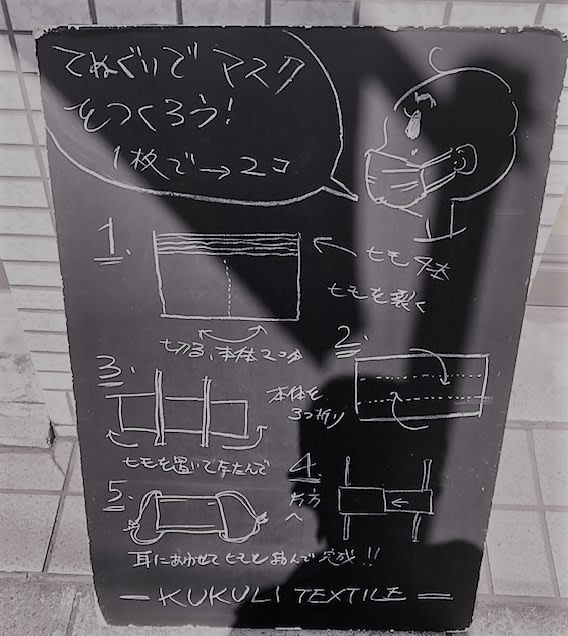 てぬぐいで マスク
をつくろう!
1枚で→2コ
1.
ヒモ4本
ヒモを裂く
切る、本体2コ分
2.
本体を
3つ折り
3.
ヒモを置いて
4.
片方
へ
5.
耳にあわせて ヒモを 結んで 完成!!
KUKULI TEXTILE